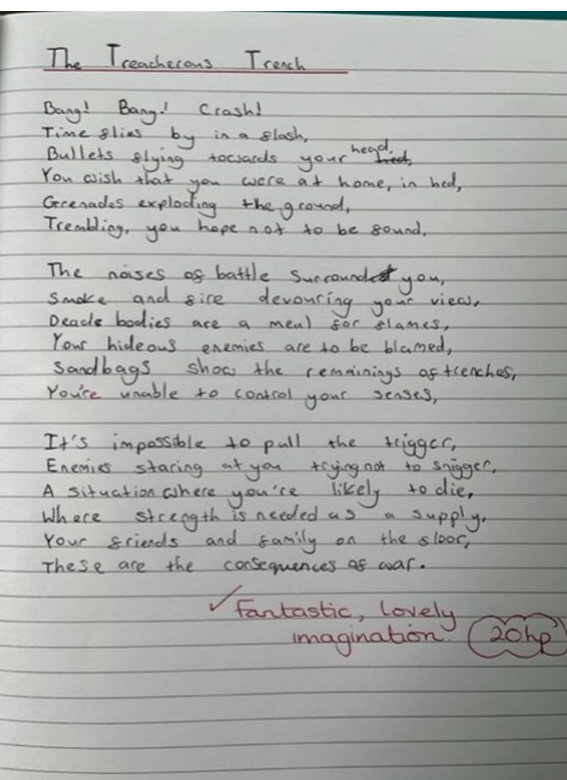 The Treacherous Trench
Bang! Bang! Crash!
Time flies by in a flash,
Bullets flying towards your head,
You wish that you were at home, in bed,
Grenades exploding the ground,
Trembling, you hope not to be found.
The noises of battle surround you,
Smoke and fire devouring your view,
Deade bodies are a meal for flames,
Your hideous enemies are to be blamed,
Sandbags show the remainings of trenches,
You're unable to control your senses,
It's impossible to pull the trigger,
Enemies staring at you trying not to snigger,
A situation where you're likely to die,
Where strength is needed as a supply,
Your friends and family on the floor,
These are the consequences of war.
✓ Fantastic, lovely
imagination. 20hp